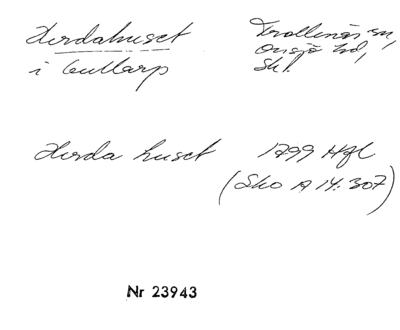 Herdahuset
i Gullarp
Trollenäs sn,
Onsjö hd,
Sk.
Herda huset 1799 Hfl
(Sko A 14:307)
Nr 23943